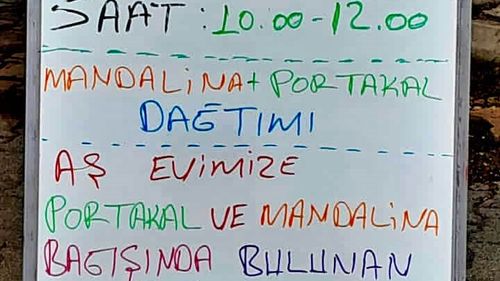 SAAT: 10.00-12.00
MANDALiNA+ PORTAKAL
DAĞTIMI
AŞ EViMiZE
PORTAKAL VE MANDALiNA
BAGIŞINDA BULUNAN